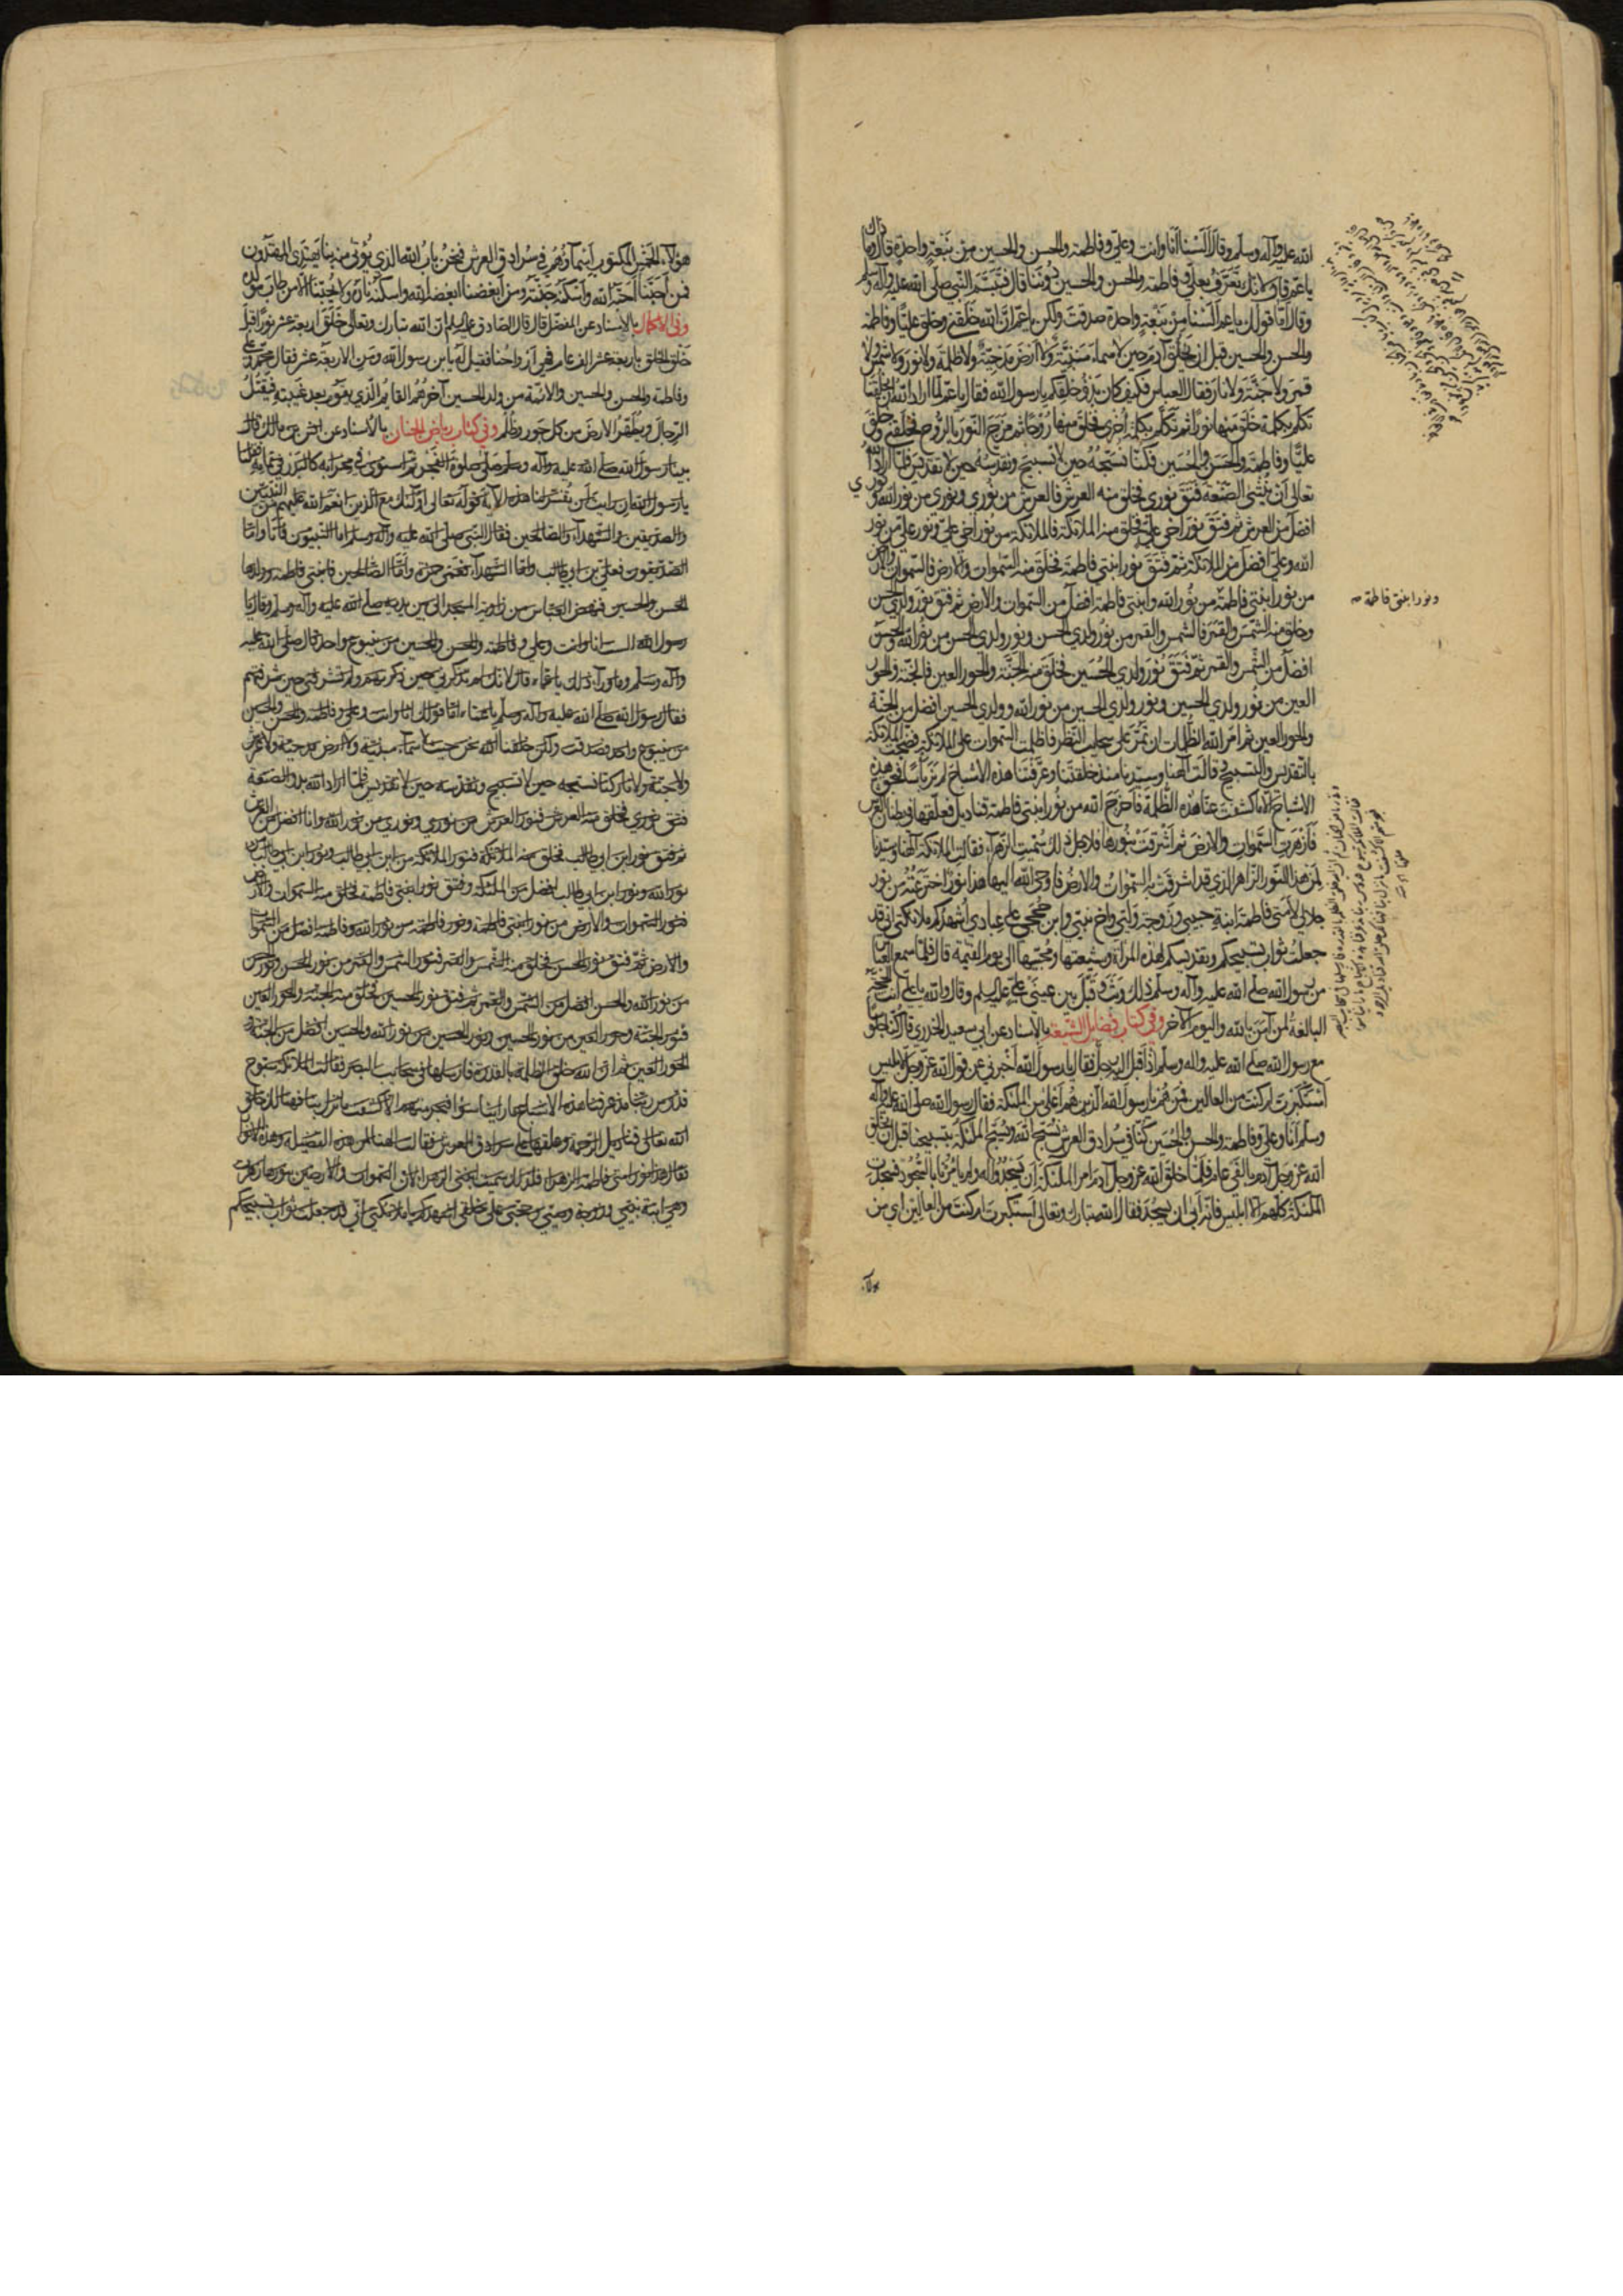 الله عليه وآله وسلم وقال ألسنا أنا وأنت وعلي وفاطمة والحسن والحسين من نبعة واحدة قال وما ذاك
يا عم قال لانك تعرف بعلي وفاطمة والحسن والحسين دوننا قال فتبسم النبي صلى الله عليه وآله وسلم
وقال أما قولك يا عم ألسنا من نبعة واحدة صدقت ولكن يا عم ان الله خلقني وخلق عليا وفاطمة
والحسن والحسين قبل ان يخلق آدم حين لا سماء مبنية ولا ارض مدحية ولا ظلمة ولا نور ولا شمس ولا
قمر ولا جنة ولا نار فقال العباس فكيف كان بدؤ خلقكم يا رسول الله فقال يا عم لما اراد الله أن يخلقنا
تكلم بكلمة خلق منها نورا ثم تكلم بكلمة أخرى فخلق منها روحا ثم مزج النور بالروح فخلقني وخلق
عليا وفاطمة والحسن والحسين فكنا نسبحه حين لا تسبيح ونقدسه حين لا تقديس فلما أراد الله
تعالى أن ينشئ الصنعة فتق نوري فخلق منه العرش فالعرش من نوري ونوري من نور الله ونوري
افضل من العرش ثم فتق نور أخي علي فخلق منه الملائكة فالملائكة من نور أخي علي ونور علي من نور
الله وعلي افضل من الملائكة ثم فتق نور ابنتي فاطمة فخلق منه السموات والارض فالسموات والارض
من نور ابنتي فاطمة من نور الله وابنتي فاطمة افضل من السموات والارض ثم فتق نور ولدي الحسن
ونور ابنتي فاطمة
وخلق منه الشمس والقمر فالشمس والقمر من نور ولدي الحسن ونور ولدي الحسن من نور الله والحسن
افضل من الشمس والقمر ثم فتق نور ولدي الحسين فخلق منه الجنة والحور العين فالجنة والحور
العين من نور ولدي الحسين ونور ولدي الحسين من نور الله وولدي الحسين افضل من الجنة
والحور العين ثم امر الله الظلمات ان تمر على سحاب النظر فاظلمت السموات على الملائكة فضجت الملائكة
بالتقديس والتسبيح وقالت الهنا وسيدنا منذ خلقتنا وعرفتنا هذه الاشباح لم نر بأسا فبحق هذه
الاشباح الا ما كشفت عنا هذه الظلمة فأخرج الله من نور ابنتي فاطمة قناديل فعلقها في بطنان العرش
فأزهرت السموات والارض ثم أشرقت بنورها فلاجل ذلك سميت الزهراء فقالت الملائكة الهنا وسيدنا
لمن هذا النور الزاهر الذي قد اشرقت به السموات والارض فاوحى الله اليها هذا نور اخترعته من نور
جلالي لأمتي فاطمة ابنة حبيبي وزوجة وليي وأخ نبيي وابن حججي على عبادي أشهدكم ملائكتي اني قد
جعلت ثواب تسبيحكم وتقديسكم لهذه المرأة وشيعتها ومحبيها الى يوم القيمة قال فلما سمع العباس
من رسول الله صلى الله عليه وآله وسلم ذلك وثب وقبل بين عيني علي عليه السلم وقال والله يا علي أنت الحجة
البالغة لمن آمن بالله واليوم الآخر وفي كتاب فضايل الشيعة بالاسناد عن أبي سعيد الخدري قال كنا جلوسا
مع رسول الله صلى الله عليه وآله وسلم اذ أقبل اليه رجل فقال يا رسول الله أخبرني عن قول الله عز وجل لابليس
استكبرت ام كنت من العالين فمن هم يا رسول الله الذين هم أعلى من الملئكة فقال رسول الله صلى الله عليه وآله
وسلم أنا وعلي وفاطمة والحسن والحسين كنا في سرادق العرش نسبح الله وتسبح الملئكة بتسبيحنا قبل أن يخلق
الله عز وجل آدم بالفي عام فلما خلق الله عز وجل آدم امر الملئكة أن يسجدوا له ولم يأمرنا بالسجود فسجدت
الملئكة كلهم الا ابليس فانه أبى ان يسجد فقال الله تبارك وتعالى أستكبرت ام كنت من العالين اي من
هؤلاء
هؤلاء الخمس المكتوب أسماؤهم في سرادق العرش فنحن باب الله الذي يؤتى منه بنا يهتدى المهتدون
فمن أحبنا أحبه الله وأسكنه جنته ومن أبغضنا أبغضه الله واسكنه ناره ولا يحبنا الا من طاب مولده
وفي الاكمال بالاسناد عن المفضل قال قال الصادق عليه السلم ان الله تبارك وتعالى خلق اربعة عشر نورا قبل
خلق الخلق باربعة عشر الف عام فهي أرواحنا فقيل له يا بن رسول الله ومن الاربعة عشر فقال محمد وعلي
وفاطمة والحسن والحسين والائمة من ولد الحسين آخرهم القايم الذي يقوم بعد غيبته فيقتل
الدجال ويطهر الارض من كل جور وظلم وفي كتاب رياض الجنان بالاسناد عن انس بن مالك قال
بينا رسول الله صلى الله عليه وآله وسلم صلى صلوة الفجر ثم استوى في محرابه كالبدر في تمامه فقلنا
يا رسول الله ان رأيت أن تفسر لنا هذه الآية قوله تعالى اولئك مع الذين انعم الله عليهم من النبيين
والصديقين والشهداء والصالحين فقال النبي صلى الله عليه وآله وسلم اما النبيون فأنا وأما
الصديقون فعلي بن ابي طالب واما الشهداء فعمي حمزة وأما الصالحين فابنتي فاطمة وولداها
الحسن والحسين فنهض العباس من زاوية المسجد الى بين يديه صلى الله عليه وآله وسلم وقال يا
رسول الله الست انا وانت وعلي وفاطمة والحسن والحسين من ينبوع واحد قال صلى الله عليه
وآله وسلم وما وراء ذلك يا عماه قال لانك لم تذكرني حين ذكرتهم ولم تشرفني حين شرفتهم
فقال رسول الله صلى الله عليه وآله وسلم يا عماه اما قولك انا وانت وعلي وفاطمة والحسن والحسين
من ينبوع واحد فصدقت ولكن خلقنا الله نحن حيث لا سماء مبنية ولا ارض مدحية ولا عرش
ولا جنة ولا نار كنا نسبحه حين لا تسبيح ونقدسه حين لا تقديس فلما اراد الله بدو الصنعة
فتق نوري فخلق منه العرش فنور العرش من نوري ونوري من نور الله وانا افضل من العرش
ثم فتق نور ابن ابي طالب فخلق منه الملائكة فنور الملائكة من ابن ابي طالب ونور ابن ابي طالب من
نور الله ونور ابن ابي طالب افضل من الملئكة وفتق نور ابنتي فاطمة فخلق منه السموات والارض
فنور السموات والأرض من نور ابنتي فاطمة ونور فاطمة من نور الله وفاطمة افضل من السموات
والارض ثم فتق نور الحسن فخلق منه الشمس والقمر فنور الشمس والقمر من نور الحسن ونور الحسن
من نور الله والحسن افضل من الشمس والقمر ثم فتق نور الحسين فخلق منه الجنة والحور العين
فنور الجنة وحور العين من نور الحسين ونور الحسين من نور الله والحسين افضل من الجنة و
الحور العين ثم ان الله خلق الظلمة بالقدرة فارسلها في سحايب البصر فقالت الملائكة سبوح
قدوس ربنا مذ عرفنا هذه الاشباح ما رأينا سوءا فبحرمتهم الا كشفت ما نزل بنا فهنالك خلق
الله تعالى قناديل الرحمة وعلقها على سرادق العرش فقالت الهنا لمن هذه الفضيلة وهذه الانوار
فقال هذا نور امتي فاطمة الزهراء فلذلك سميت امتي الزهراء لان السموات والارضين بنورها زهرت
وهي ابنة نبيي وزوجة وصيي وحجتي على خلقي اشهدكم يا ملائكتي اني قد جعلت ثواب تسبيحكم